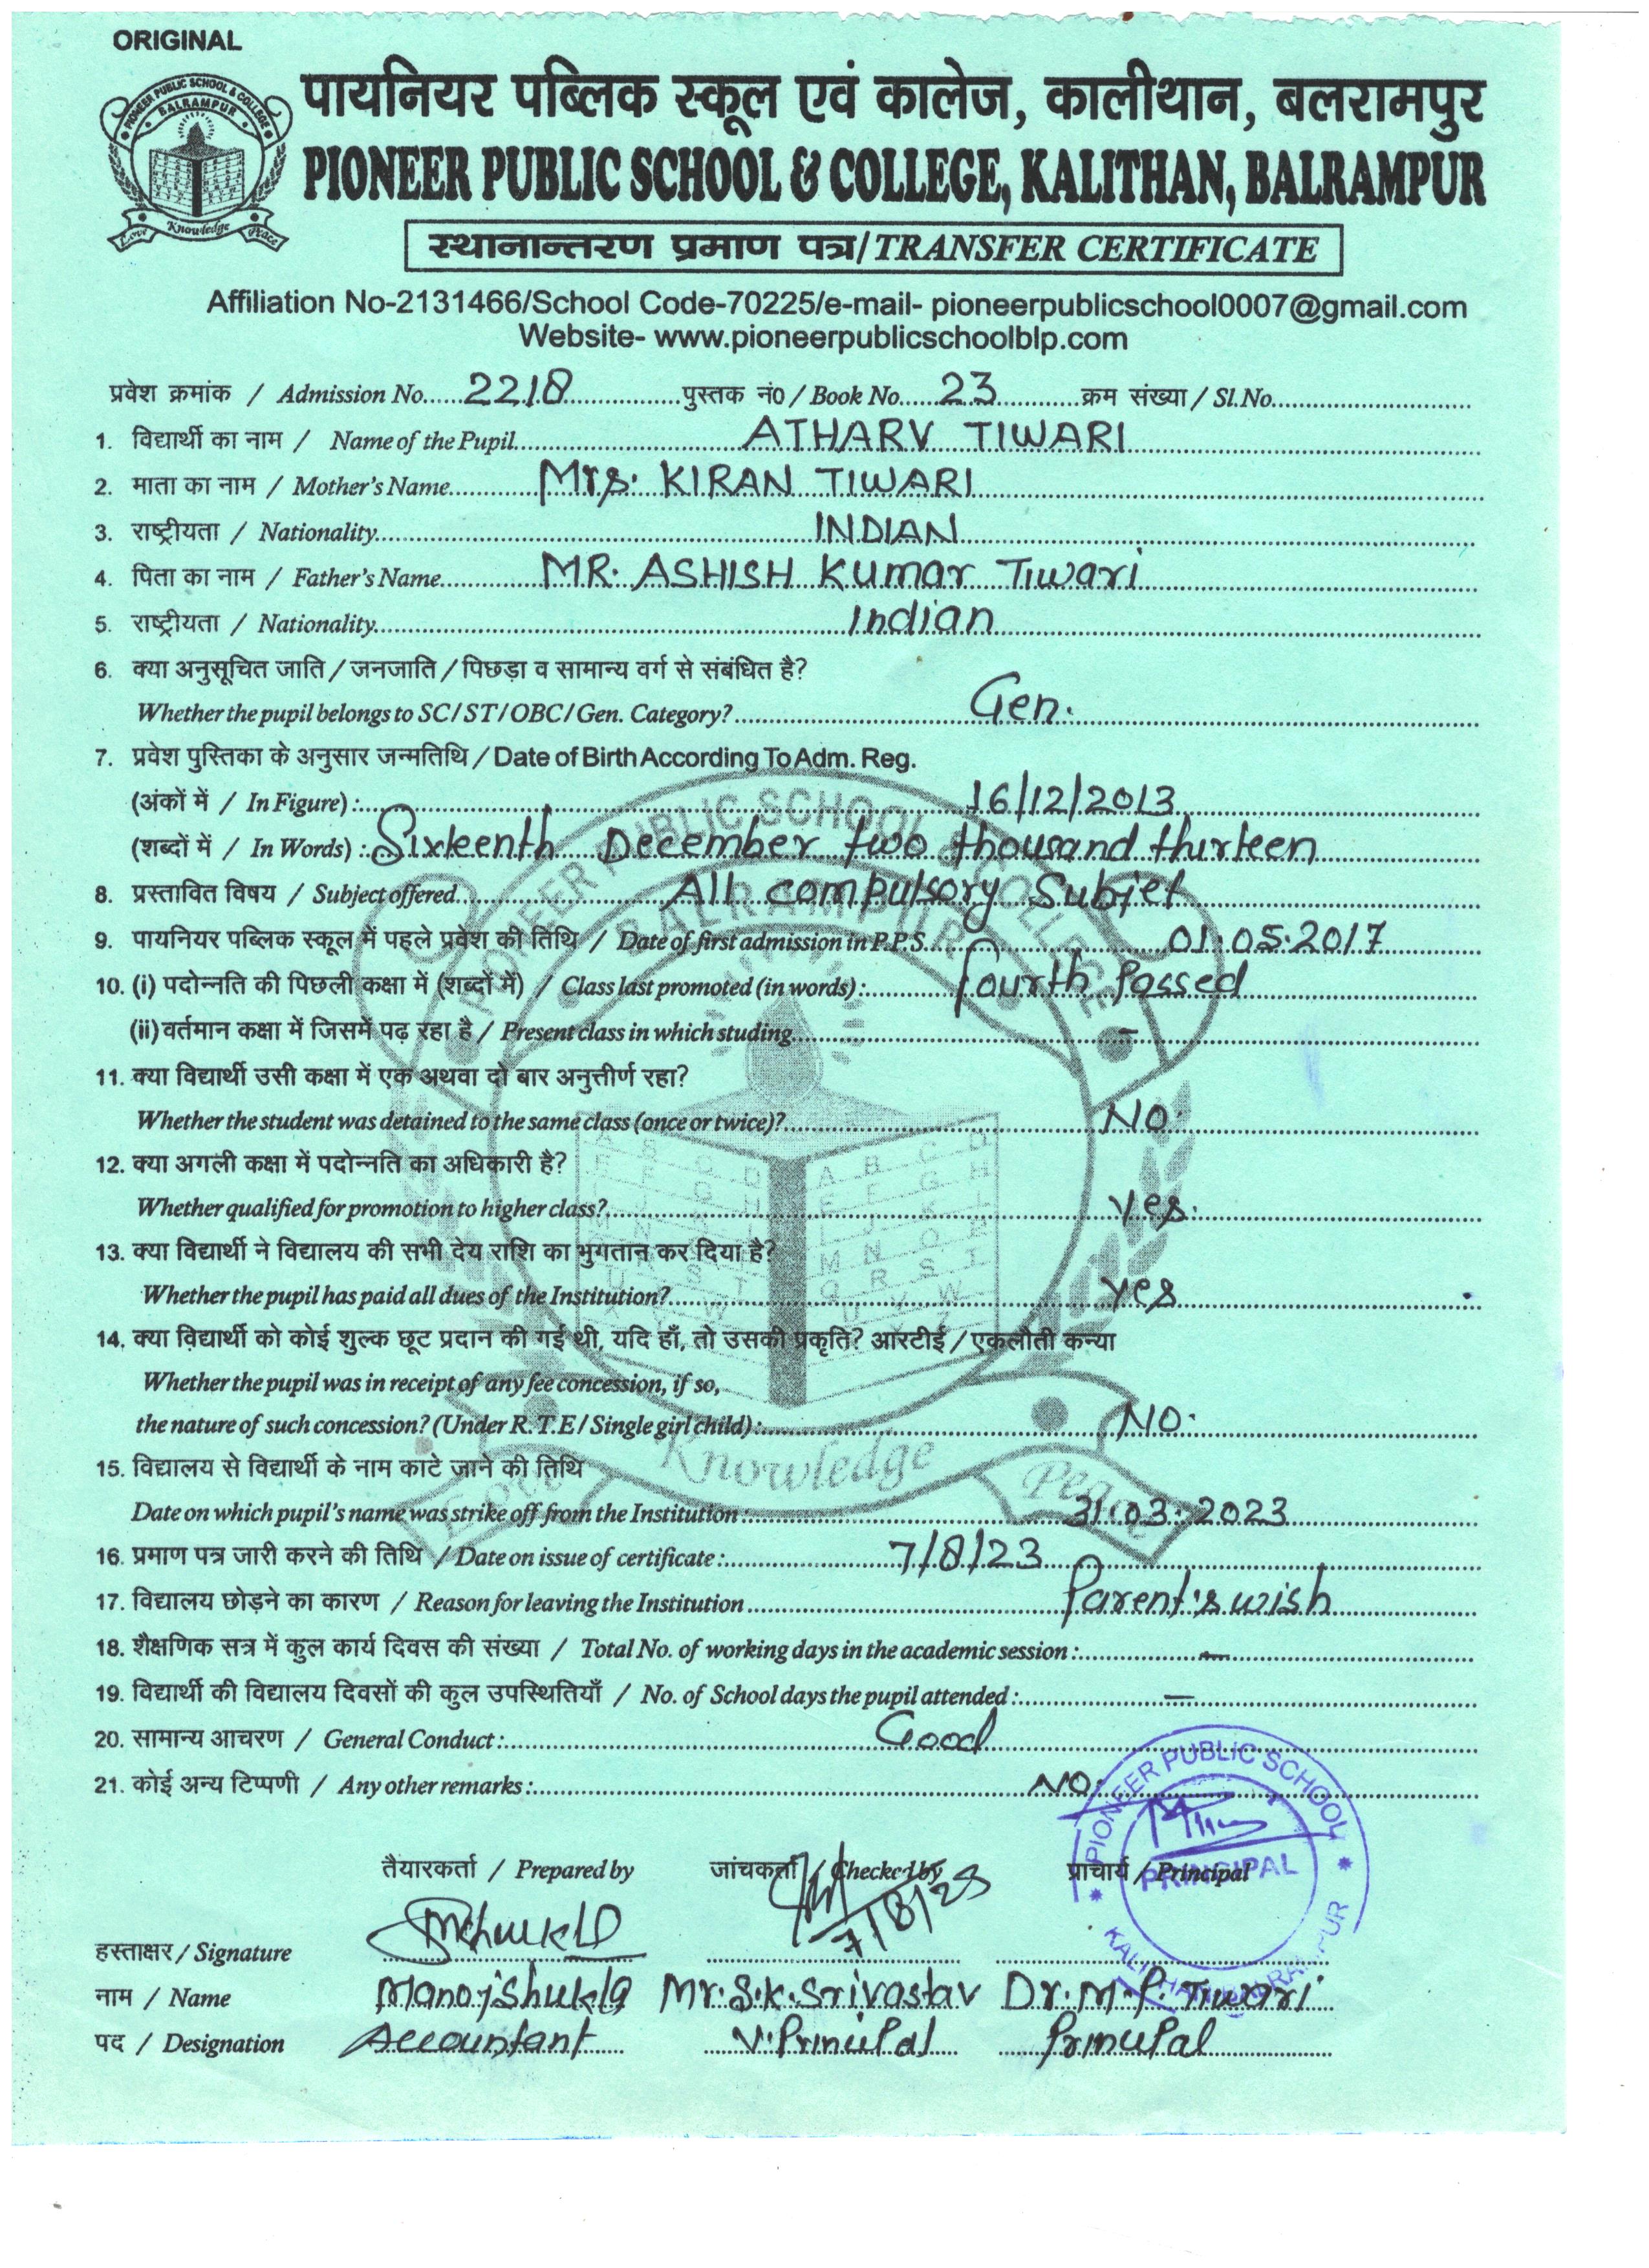 ORIGINAL
PIONEER PUBLIC SCHOOL & COLLEGE
BALRAMPUR
Love Knowledge Peace
पायनियर पब्लिक स्कूल एवं कालेज, कालीथान, बलरामपुर
PIONEER PUBLIC SCHOOL & COLLEGE, KALITHAN, BALRAMPUR
स्थानान्तरण प्रमाण पत्र/TRANSFER CERTIFICATE
Affiliation No-2131466/School Code-70225/e-mail- pioneerpublicschool0007@gmail.com
Website- www.pioneerpublicschoolblp.com
प्रवेश क्रमांक / Admission No. 2218 पुस्तक नं0 / Book No. 23 क्रम संख्या / Sl.No.
1. विद्यार्थी का नाम / Name of the Pupil ATHARV TIWARI
2. माता का नाम / Mother's Name Mrs. KIRAN TIWARI
3. राष्ट्रीयता / Nationality INDIAN
4. पिता का नाम / Father's Name MR. ASHISH Kumar Tiwari
5. राष्ट्रीयता / Nationality Indian
6. क्या अनुसूचित जाति / जनजाति / पिछड़ा व सामान्य वर्ग से संबंधित है?
Whether the pupil belongs to SC/ ST/ OBC/ Gen. Category? Gen.
7. प्रवेश पुस्तिका के अनुसार जन्मतिथि / Date of Birth According To Adm. Reg.
(अंकों में / In Figure) : 16/12/2013
(शब्दों में / In Words) : Sixteenth December two thousand thirteen
8. प्रस्तावित विषय / Subject offered All compulsory Subjet
9. पायनियर पब्लिक स्कूल में पहले प्रवेश की तिथि / Date of first admission in P.P.S. 01.05.2017
10. (i) पदोन्नति की पिछली कक्षा में (शब्दों में) / Class last promoted (in words) : Fourth Passed
(ii) वर्तमान कक्षा में जिसमें पढ़ रहा है / Present class in which studing -
11. क्या विद्यार्थी उसी कक्षा में एक अथवा दो बार अनुत्तीर्ण रहा?
Whether the student was detained to the same class (once or twice)? NO.
12. क्या अगली कक्षा में पदोन्नति का अधिकारी है?
Whether qualified for promotion to higher class? Yes.
13. क्या विद्यार्थी ने विद्यालय की सभी देय राशि का भुगतान कर दिया है?
Whether the pupil has paid all dues of the Institution? Yes
14. क्या विद्यार्थी को कोई शुल्क छूट प्रदान की गई थी, यदि हाँ, तो उसकी प्रकृति? आरटीई / एकलौती कन्या
Whether the pupil was in receipt of any fee concession, if so,
the nature of such concession? (Under R.T.E / Single girl child) : NO.
15. विद्यालय से विद्यार्थी के नाम काटे जाने की तिथि
Date on which pupil's name was strike off from the Institution : 31.03.2023
16. प्रमाण पत्र जारी करने की तिथि / Date on issue of certificate : 7/8/23
17. विद्यालय छोड़ने का कारण / Reason for leaving the Institution Parent's wish
18. शैक्षणिक सत्र में कुल कार्य दिवस की संख्या / Total No. of working days in the academic session : -
19. विद्यार्थी की विद्यालय दिवसों की कुल उपस्थितियाँ / No. of School days the pupil attended : -
20. सामान्य आचरण / General Conduct : Good
21. कोई अन्य टिप्पणी / Any other remarks : NO.
PIONEER PUBLIC SCHOOL
PRINCIPAL
तैयारकर्ता / Prepared by जांचकर्ता / Checked by प्राचार्य / Principal
हस्ताक्षर / Signature 7/8/23
नाम / Name Manoj Shukla Mr. S.K. Srivastav Dr. M.P. Tiwari
पद / Designation Accountant V. Principal Principal